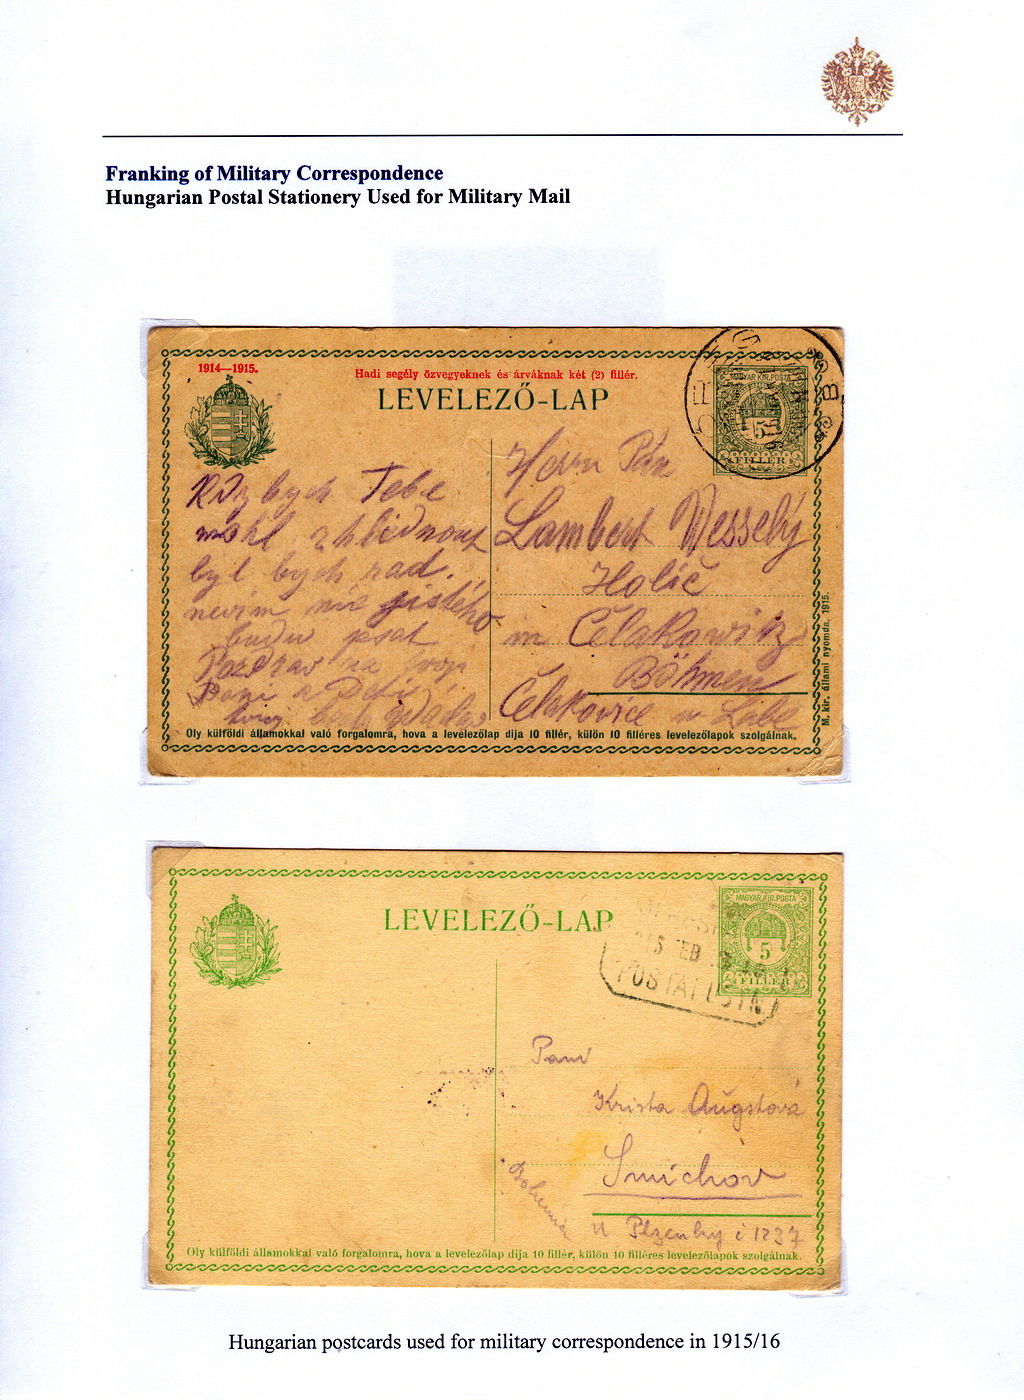 Franking of Military Correspondence
Hungarian Postal Stationery Used for Military Mail
1914—1915.
Hadi segély özvegyeknek és árváknak két (2) fillér.
LEVELEZŐ-LAP
MAGYAR KIR. POSTA
5
FILLÉR
Herrn Pán
Lambert Wesselý
Holič
in Čelakowitz
Böhmen
Čelakovice n Labe
bych Tebe
mohl zhlednout
byl bych rad.
nevim nic jistého
budu psat
Pozdrav na tvoji
Pani a Děti
M. kir. állami nyomda. 1915.
Oly külföldi államokkal való forgalomra, hova a levelezőlap dija 10 fillér, külön 10 filléres levelezőlapok szolgálnak.
LEVELEZŐ-LAP
MAGYAR. KIR. POSTA
5
FILLÉR
Paní
Krista Augstová
Smíchov
Bohemia
1237
Oly külföldi államokkal való forgalomra, hova a levelezőlap dija 10 fillér, külön 10 filléres levelezőlapok szolgálnak.
Hungarian postcards used for military correspondence in 1915/16